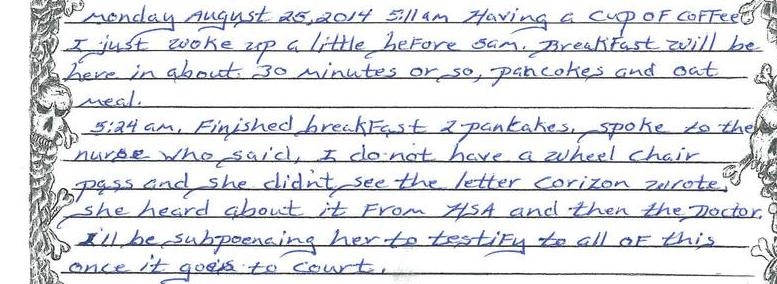 Monday August 25, 2014 5:11am Having a cup of coffee
I just woke up a little before 5am. Breakfast will be
here in about 30 minutes or so, pancakes and oat
meal.
5:24 am. Finished breakfast 2 pankakes. spoke to the
nurse who said, I do not have a wheel chair
pass and she didn't see the letter Corizon wrote,
she heard about it from HSA and then the Doctor.
I'll be subpoenaing her to testify to all of this
once it goes to court.